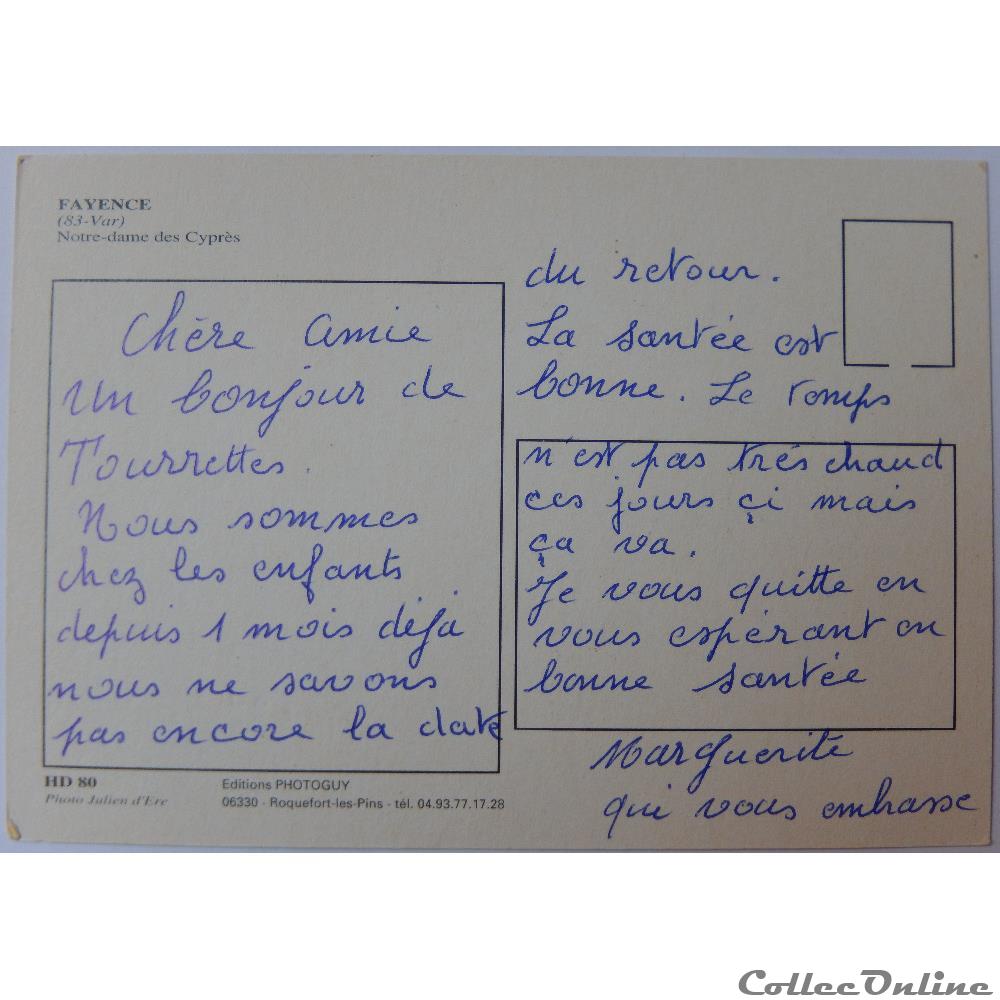 FAYENCE
(83-Var)
Notre-dame des Cyprès
Chère Amie
Un bonjour de
Tourrettes.
Nous sommes
chez les enfants
depuis 1 mois déjà
nous ne savons
pas encore la date
du retour.
La santée est
bonne. Le temps
n'est pas trés chaud
ces jours çi mais
ça va.
Je vous quitte en
vous espérant en
bonne santée
Marguerite
qui vous embrasse
HD 80
Photo Julien d'Ere
Editions PHOTOGUY
06330 - Roquefort-les-Pins - tél. 04.93.77.17.28
CollecOnline